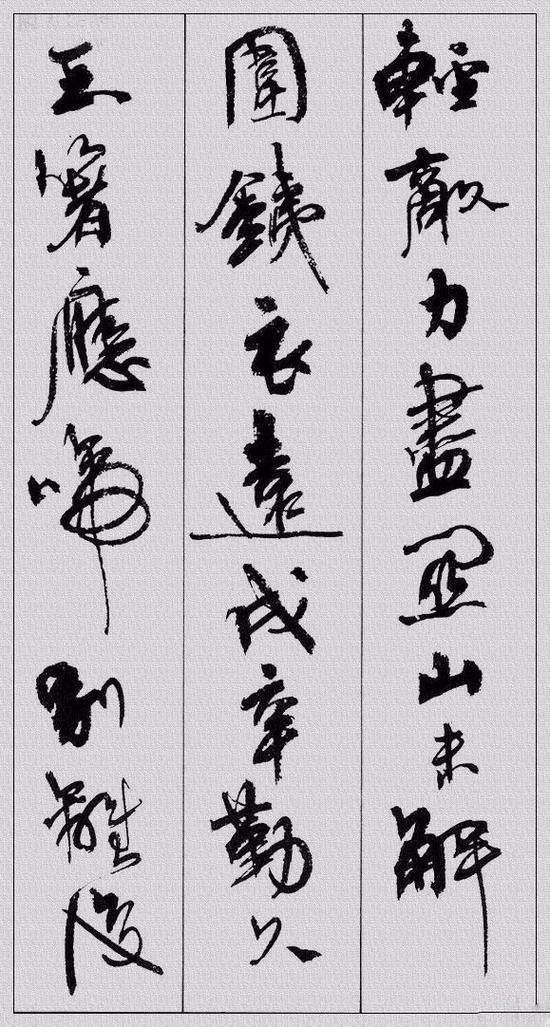 輕敵力盡關山未解
圍鐵衣遠戍辛勤久
玉箸應啼別離後